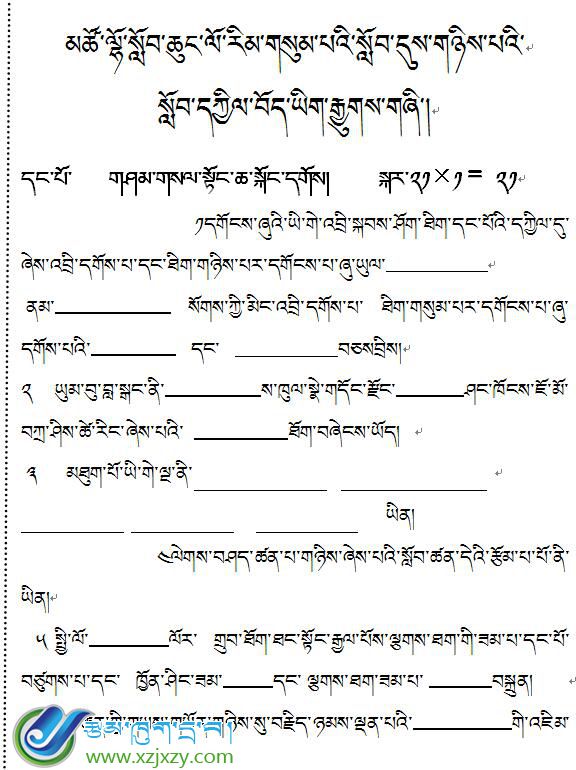 མཚོ་ལྷོ་སློབ་ཆུང་ལོ་རིམ་གསུམ་པའི་སློབ་དུས་གཉིས་པའི་
སློབ་དཀྱིལ་བོད་ཡིག་རྒྱུགས་གཞི།
དང་པོ་ གཤམ་གསལ་སྟོང་ཆ་སྐོང་དགོས། སྐར་༢༡×༡= ༢༡
༡དགོངས་ཞུའི་ཡི་གེ་འབྲི་སྐབས་ཤོག་ཐིག་དང་པོའི་དཀྱིལ་དུ་
ཞེས་འབྲི་དགོས་པ་དང་ཐིག་གཉིས་པར་དགོངས་པ་ཞུ་ཡུལ་
ནམ་ སོགས་ཀྱི་མིང་འབྲི་དགོས་པ་ ཐིག་གསུམ་པར་དགོངས་པ་ཞུ་
དགོས་པའི་ དང་ བཅས་བྲིས།
༢ ཡུམ་བུ་བླ་སྒང་ནི་ ས་ཁུལ་སྣེ་གདོང་རྫོང་ ཤང་ཁོངས་ཇོ་མོ་
བཀྲ་ཤིས་ཚེ་རིང་ཞེས་པའི་ ཐོག་བཞེངས་ཡོད།
༣ མཐུག་པོ་ཡི་གེ་ལྔ་ནི་
ཡིན།
༤ལེགས་བཤད་ཚན་པ་གཉིས་ཞེས་པའི་སློབ་ཚན་དེའི་རྩོམ་པ་པོ་ནི་
ཡིན།
༥ སྤྱི་ལོ་ ལོར་ གྲུབ་ཐོབ་ཐང་སྟོང་རྒྱལ་པོས་ལྕགས་ཐག་གི་ཟམ་པ་དང་པོ་
བཙུགས་པ་དང་ ཁྱོན་ཤིང་ཟམ་ དང་ ལྕགས་ཐག་ཟམ་པ་ བསྐྲུན།
གཡས་གཡོན་གཉིས་སུ་བརྗིད་ཉམས་ལྡན་པའི་ གི་འཇིམ་
www.xzjxzy.com